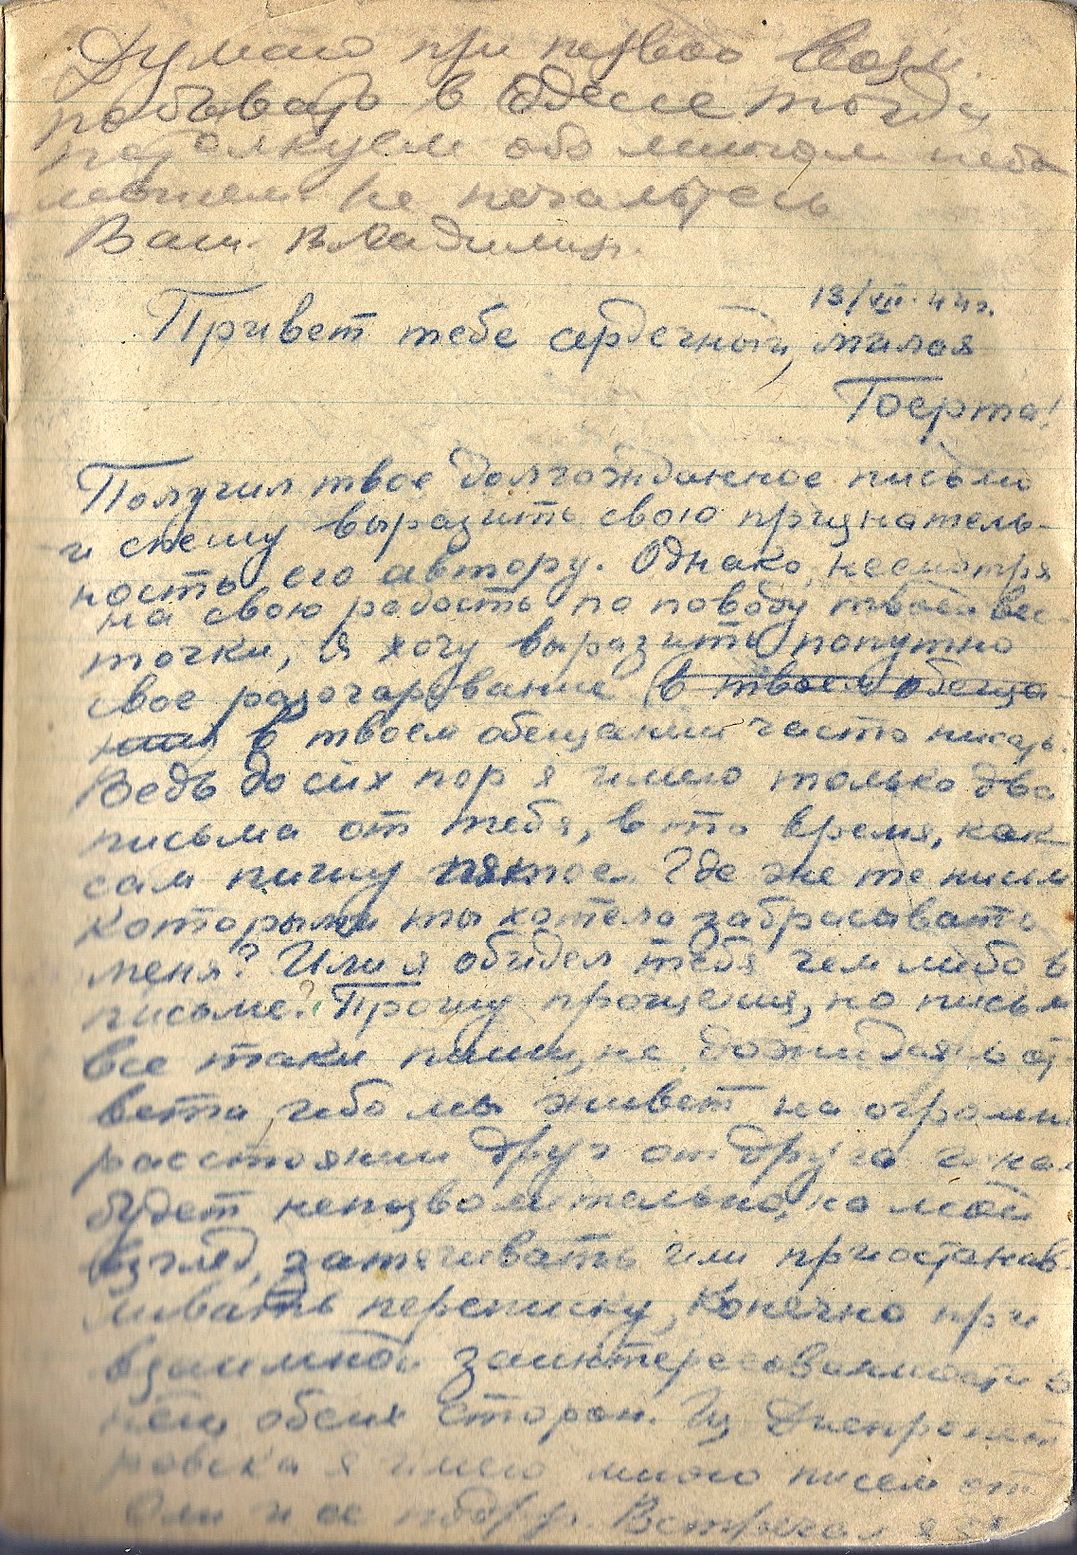 Думаю при первой возм.
побывать в Одессе тогда
потолкуем обо многом небы
Не печальтесь
Ваш Владимир.
13/VIII·44г.
Привет тебе сердечный, милая
Берта!
Получил твое долгожданное письмо
и спешу выразить свою признатель-
ность его автору. Однако, несмотря
на свою радость по поводу твоей вес-
точки, я хочу выразить попутно
свое разочарование (в твоем обеща-
нии в твоем обещании часто писать.
Ведь до сих пор я имею только два
письма от тебя, в то время, как
сам пишу пятое. Где же те письм
которыми ты хотела забрасывать
меня? Или я обидел тебя чем либо в
письме? Прошу прощения, но письм
все таки пиши, не дожидаясь от
вета, ибо мы живет на огромн
расстоянии друг от друга и нам
будет непозволительно, на мой
взгляд, затягивать или приостанав-
ливать переписку, конечно при
взаимной заинтересованности в
ней обеих сторон. Из Днепропет
ровска я имею много писем от
Оли и ее подруг. Встречал я